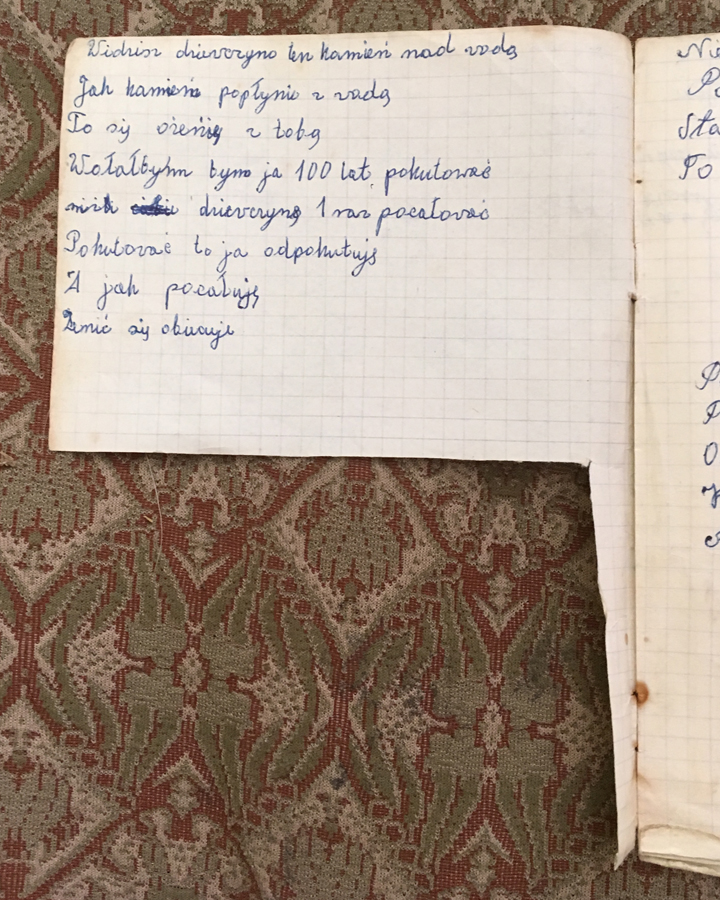 Widzisz dziewczyno ten kamień nad wodą
Jak kamień popłynie z wodą
To się ożenię z tobą
Wołałbyhm bym ja 100 lat pokutować
niż dziewczynę 1 raz pocałować
Pokutować to ja odpokutuję
A jak pocałuję
Żenić się obiecuje
Ni
P
Sta
To
P
P
O